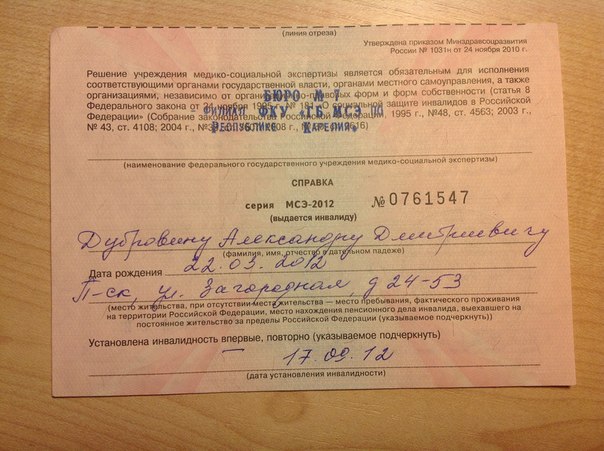 (линия отреза)
Утверждена приказом Минздравсоцразвития
России № 1031н от 24 ноября 2010 г.
Решение учреждения медико-социальной экспертизы является обязательным для исполнения
соответствующими органами государственной власти, органами местного самоуправления, а также
организациями, независимо от организационно-правовых форм и форм собственности (статья 8
Федерального закона от 24 ноября 1995 г. № 181 О социальной защите инвалидов в Российской
Федерации» (Собрание законодательства Российской Федерации, 1995 г., №48, ст. 4563; 2003 г.,
№ 43, ст. 4108; 2004 г.,
БЮРО № 7
ФИЛИАЛ ФКУ «ГБ МСЭ ПО
РЕСПУБЛИКЕ КАРЕЛИЯ»
(наименование федерального государственного учреждения медико-социальной экспертизы)
СПРАВКА
серия МСЭ-2012 № 0761547
(выдается инвалиду)
Дубровину Александру Дмитриевичу
(фамилия, имя, отчество в дательном падеже)
Дата рождения 22.03.2012
П-ск, ул. Загородная, д 24-53
(место жительства, при отсутствии места жительства — место пребывания, фактического проживания
на территории Российской Федерации, место нахождения пенсионного дела инвалида, выехавшего на
постоянное жительство за пределы Российской Федерации (указываемое подчеркнуть))
Установлена инвалидность впервые, повторно (указываемое подчеркнуть)
— 17.09.12
(дата установления инвалидности)